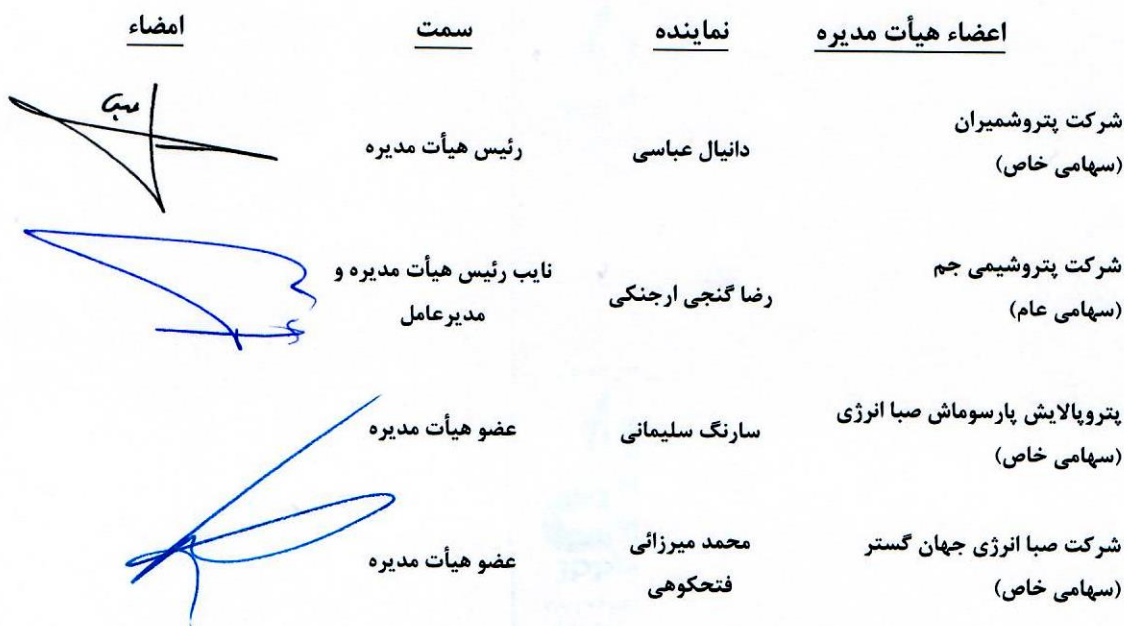 اعضاء هیأت مدیره نماینده سمت امضاء
شرکت پتروشمیران
(سهامی خاص)
دانیال عباسی
رئیس هیأت مدیره
شرکت پتروشیمی جم
(سهامی عام)
رضا گنجی ارجنکی
نایب رئیس هیأت مدیره و
مدیرعامل
پتروپالایش پارسوماش صبا انرژی
(سهامی خاص)
سارنگ سلیمانی
عضو هیأت مدیره
شرکت صبا انرژی جهان گستر
(سهامی خاص)
محمد میرزائی
فتحکوهی
عضو هیأت مدیره